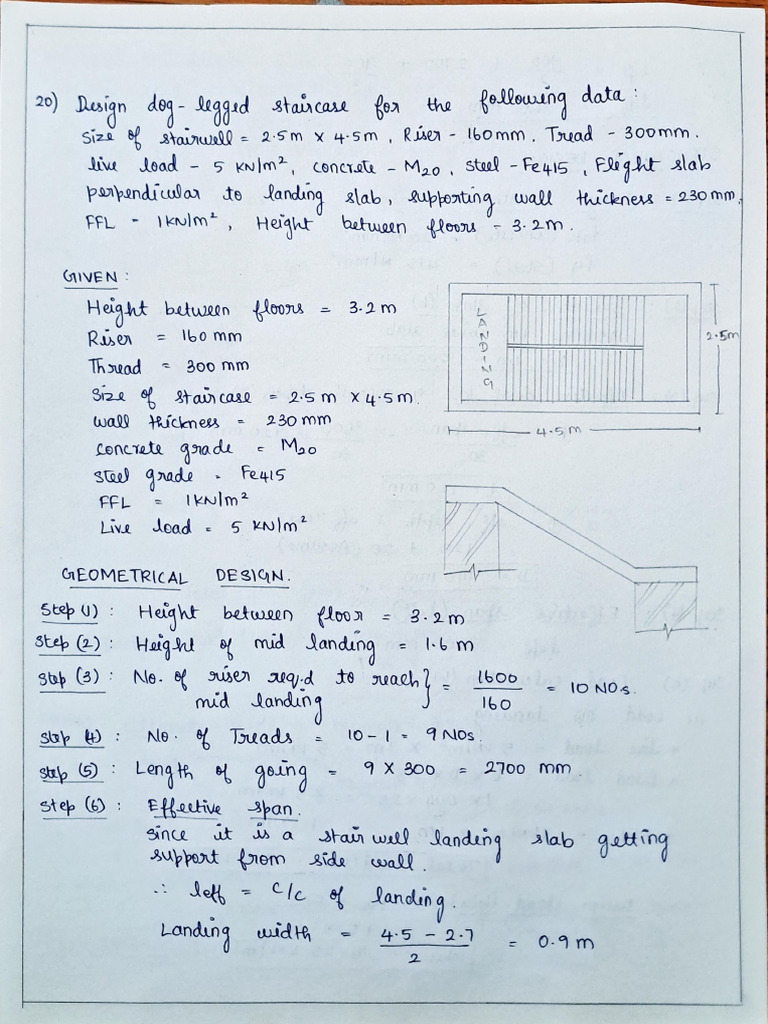 20) Design dog-legged staircase for the following data:
Size of stairwell = 2.5m x 4.5m, Riser - 160mm. Tread - 300mm.
live load - 5 KN/m², concrete - M20, steel - Fe415, Flight slab
perpendicular to landing slab, supporting wall thickness = 230 mm,
FFL - 1KN/m², Height between floors - 3.2m.
GIVEN:
Height between floors = 3.2m
Riser = 160 mm
Thread = 300 mm
Size of staircase = 2.5 m x 4.5m.
wall thickness = 230 mm
concrete grade = M20
steel grade = Fe415
FFL = 1KN/m²
Live load = 5 KN/m²
LANDING
2.5m
4.5m
GEOMETRICAL DESIGN.
Step (1): Height between floor = 3.2m
Step (2): Height of mid landing = 1.6 m
Step (3): No. of riser req.d to reach } = 1600/160 = 10 NO.s.
mid landing
Step (4): No. of Treads = 10 - 1 = 9 NOs.
Step (5): Length of going = 9 x 300 = 2700 mm.
Step (6): Effective span.
Since it is a stair well landing slab getting
support from side wall.
∴ leff = c/c of landing.
Landing width = 4.5 - 2.7 / 2 = 0.9 m